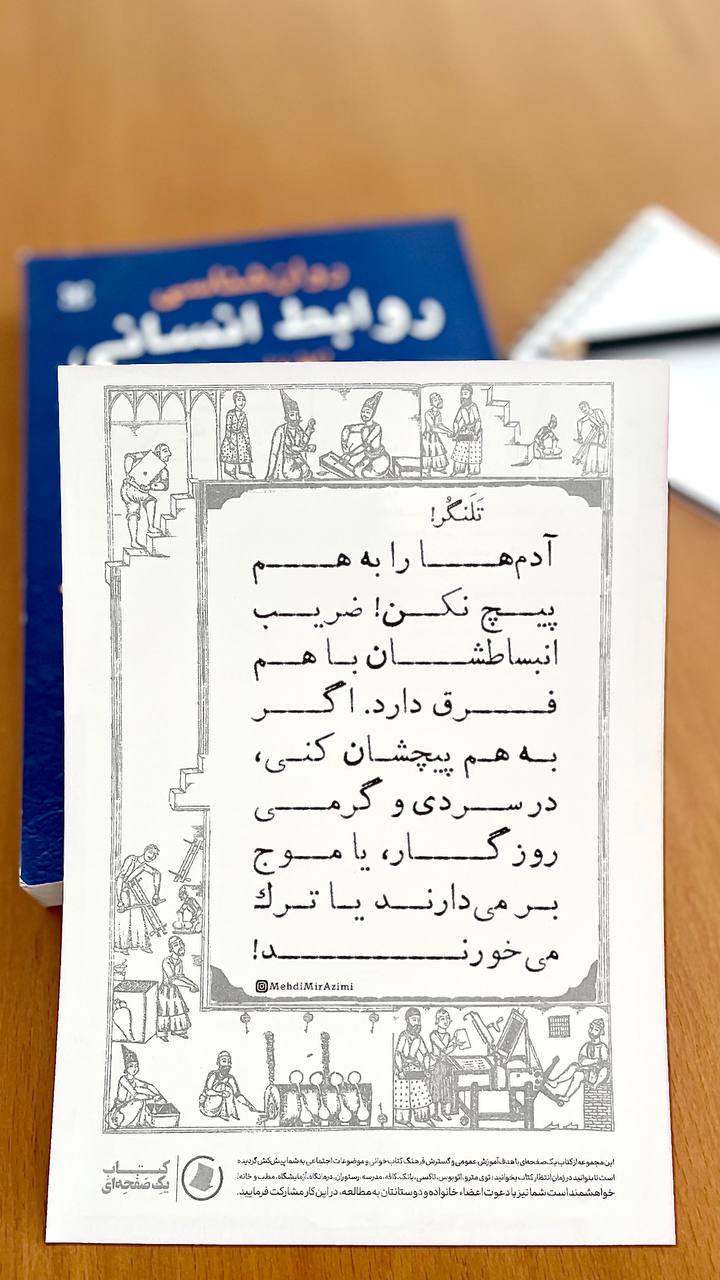 روان‌شناسی
روابط انسانی
تَلَنگُر!
آدم‌هــــا را به هـــم
پیـــچ نکـــن! ضریـــب
انبساطشـــــان بـا هـــم
فـــــرق دارد. اگـــر
بــه هــم پیچشــان کنــی،
در ســـردی و گرمـــی
روزگـــــار، یا مـــوج
بــر می‌دارنــــد یــا تــرك
می‌خورنــــــــــد!
MehdiMirAzimi
این مجموعه از کتاب یک صفحه‌ای با هدف آموزش عمومی و گسترش فرهنگ کتاب‌خوانی و موضوعات اجتماعی به شما پیش‌کش گردیده
است تا بتوانید در زمان انتظار کتاب بخوانید: توی مترو، اتوبوس، تاکسی، بانک، کافه، مدرسه، رستوران، درمانگاه، آزمایشگاه، مطب و خانه!
خواهشمند است شما نیز با دعوت اعضاء خانواده و دوستانتان به مطالعه، در این کار مشارکت فرمایید.
کتاب
یک صَفحِه‌ای